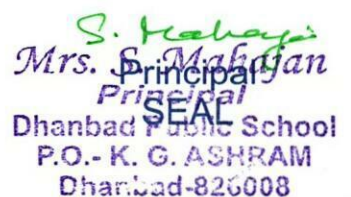 S. Mahajan
Mrs. S. Mahajan
Principal
Principal
SEAL
Dhanbad Public School
P.O.- K. G. ASHRAM
Dhanbad-826008